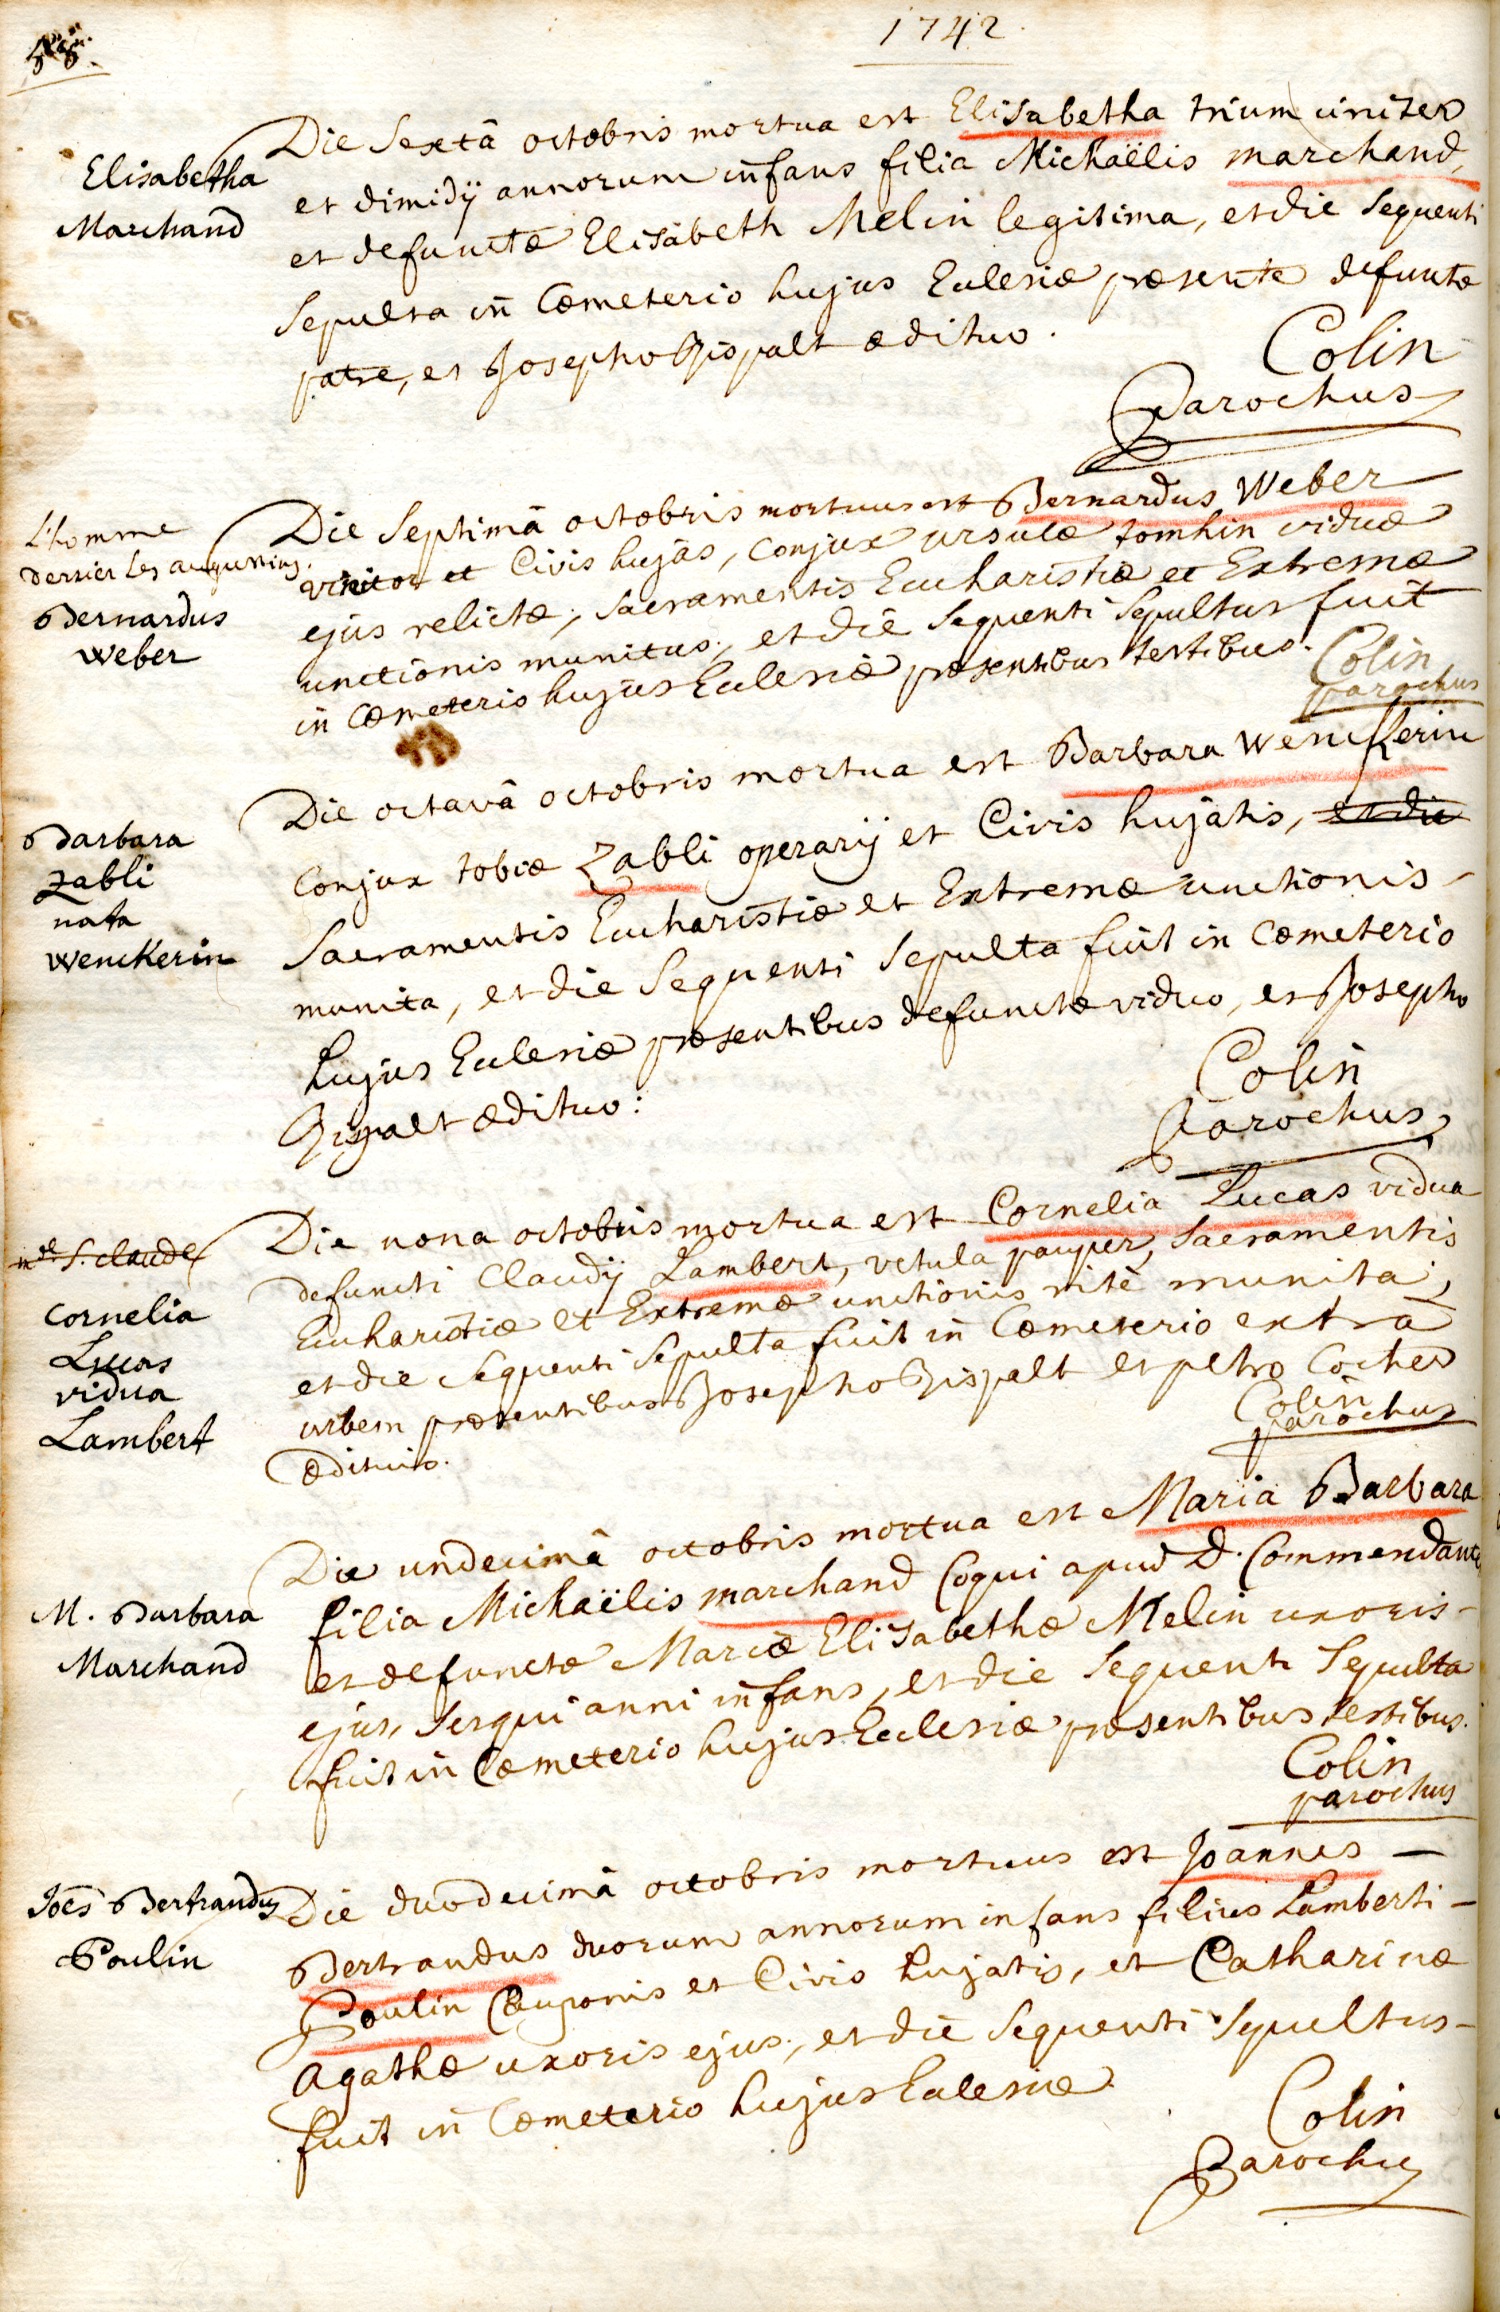 1742
Elisabetha
Marchand
Die Sextâ octobris mortua est Elisabetha trium circiter
et dimidÿ annorum infans filia Michaëlis marchand,
et defunctæ Elisabeth Melin legitima, et die sequenti
sepulta in Cœmeterio hujus Eclesiæ præsente defunctæ
patre, et Josepho Gispalt ædituo.
Colin
Parochus
L'homme
derrier les augustins.
Bernardus
Weber
Die Septimâ octobris mortuus est Bernardus Weber
et Civis hujas, Conjux ursulæ tomhin viduæ
ejus relictæ, sacramentis Eucharistiæ et Extremæ
unctionis munitus, et die sequenti sepultus fuit
in Cœmeterio hujus Eclesiæ præsentibus testibus.
Colin
parochus
Barbara
Zabli
nata
Wenckerin
Die octavâ octobris mortua est Barbara Wenckerin
Conjux tobiæ Zabli operarÿ et Civis hujatis, et die
Sacramentis Eucharistiæ et Extremæ unctionis
munita, et die Sequenti Sepulta fuit in Cœmeterio
hujus Eclesiæ præsentibus defunctæ viduo, et Josepho
Gispalt ædituo:
Colin
Parochus
S. Claude
Cornelia
Lucas
vidua
Lambert
Die nona octobris mortua est Cornelia Lucas vidua
defuncti Claudÿ Lambert, vetula pauper, Sacramentis
Eucharistiæ et Extremæ unctionis ritè munita,
et die sequenti sepulta fuit in Cœmeterio extra
urbem præsentibus Josepho Gispalt et petro Cocher
ædituis.
Colin
parochus
M. Barbara
Marchand
Die undecimâ octobris mortua est Maria Barbara
filia Michaëlis marchand Coqui apud D. Commendante
et defunctæ Mariæ Elisabethæ Melin uxoris
ejus, sesqui anni infans, et die sequenti Sepulta
fuit in Cœmeterio hujus Ecclesiæ præsentibus testibus.
Colin
parochus
Joēs Bertrandus
Poulin
Die duodecimâ octobris mortuus est Joannes
Bertrandus duorum annorum infans filius Lamberti
Poulin Cauponis et Civis hujatis, et Catharinæ
Agathæ uxoris ejus, et die sequenti sepultus
fuit in Cœmeterio hujus Eclesiæ
Colin
Parochus